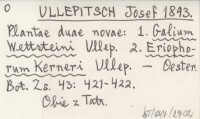 O
ULLEPITSCH Josef 1893.
Plantae duae novae: 1. Galium
Wettsteini Ullep. 2. Eriopho-
rum Kerneri Ullep. — Oester.
Bot. Zs. 43: 421-422.
Obie z Tatr.